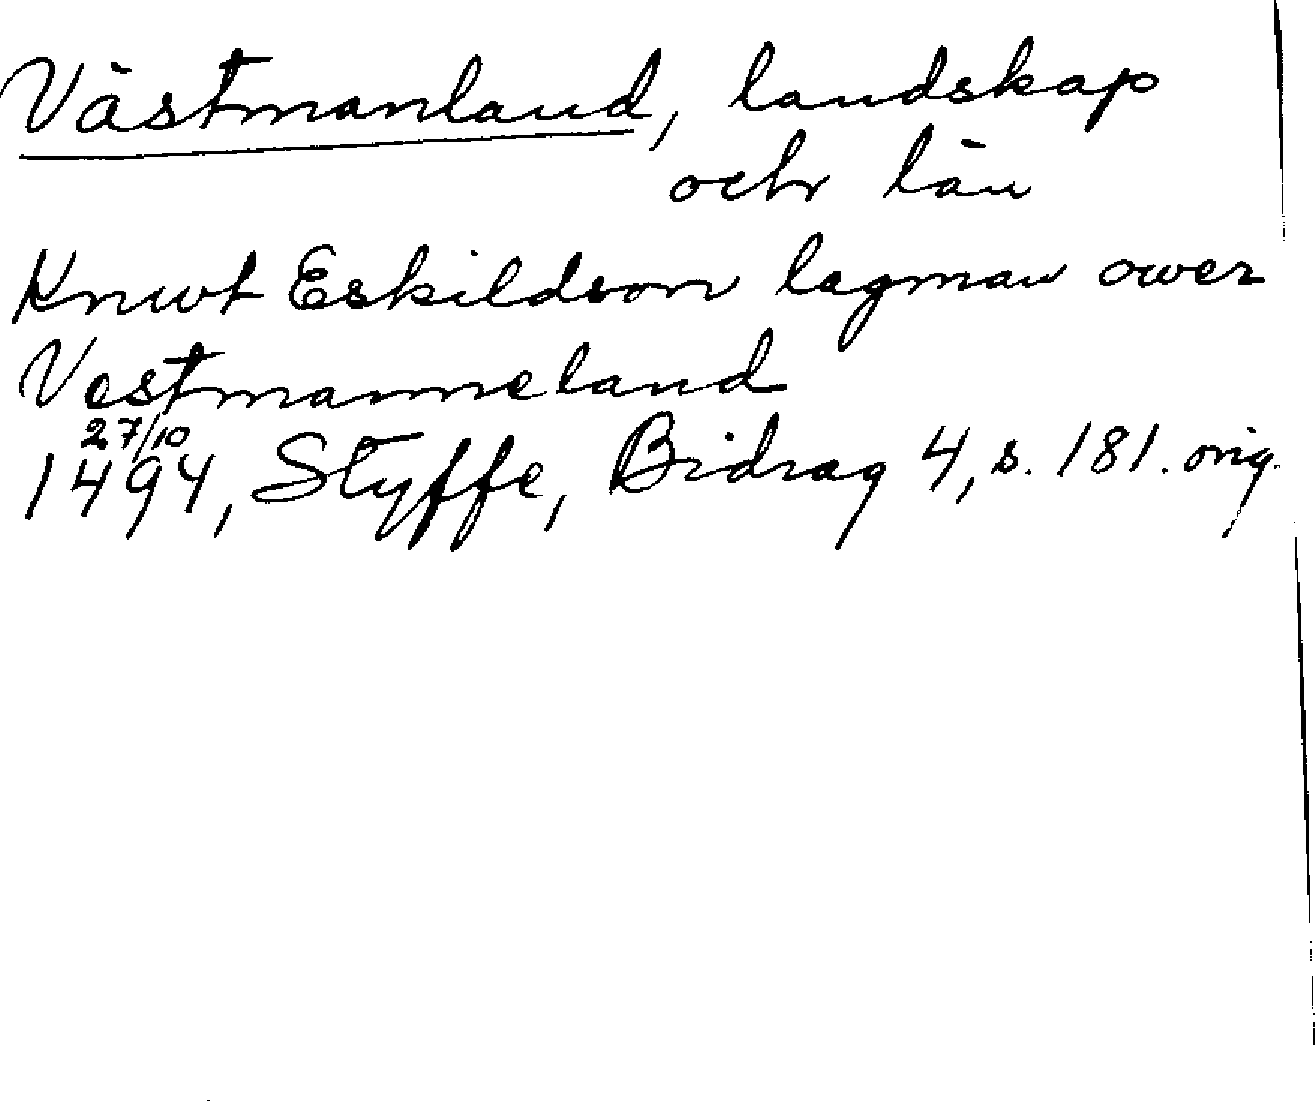 Västmanland, landskap
och län
Knwt Eskildson lagman ower
Vestmanneland
27/10
1494, Styffe, Bidrag 4, s. 181. orig.